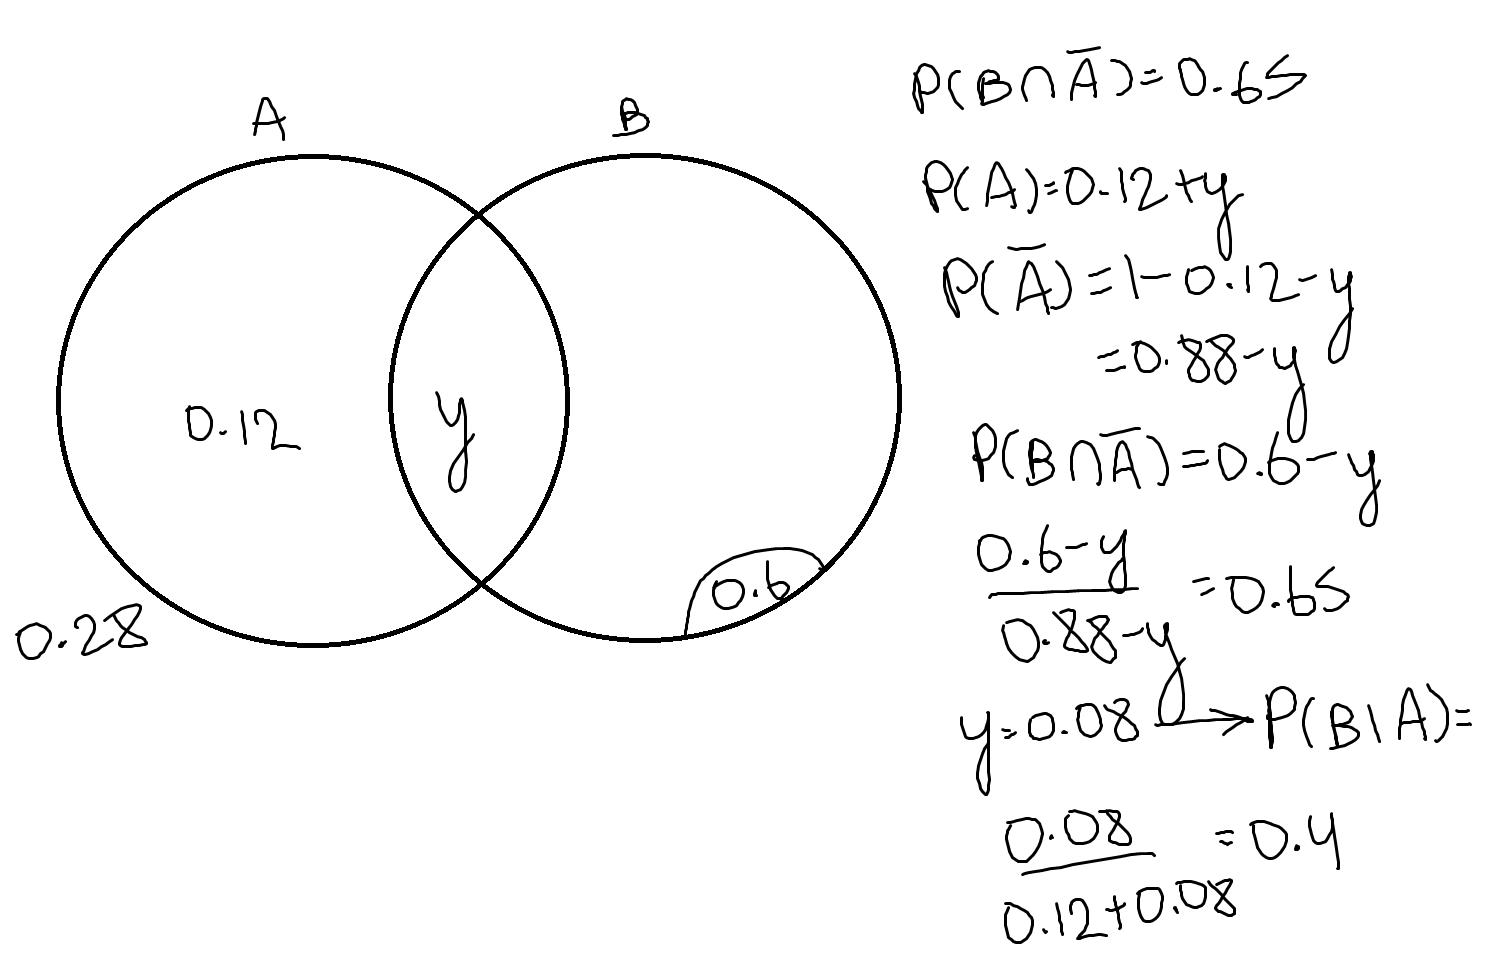 A
B
0.12
y
0.6
0.28
P(B∩A̅)=0.65
P(A)=0.12+y
P(A̅)=1-0.12-y
=0.88-y
P(B∩A̅)=0.6-y
0.6-y
0.88-y
=0.65
y=0.08 → P(B|A)=
0.08
0.12+0.08
=0.4